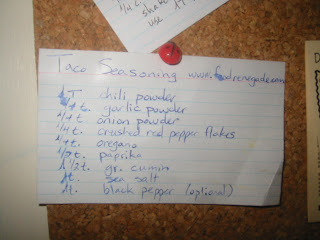 shake
use
Taco Seasoning www.foodrenegade.com
1 T chili powder
1/4 t. garlic powder
1/4 t. onion powder
1/4 t. crushed red pepper flakes
1/4 t. oregano
1/2 t. paprika
1 1/2 t. gr. cumin
1 t. sea salt
1 t. black pepper (optional)